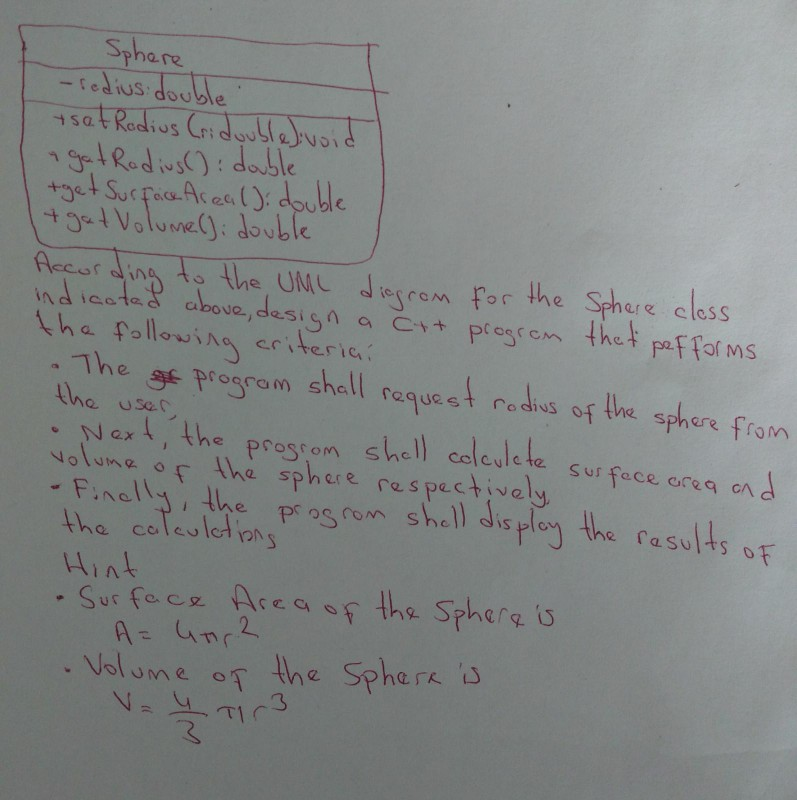 Sphere
- radius: double
+ setRadius (r: double): void
+ getRadius(): double
+ getSurfaceArea(): double
+ getVolume(): double
According to the UML diagram for the Sphere class
indicated above, design a C++ program that pefforms
the following criteria:
• The program shall request radius of the sphere from
the user,
• Next, the program shall calculate surface area and
volume of the sphere respectively,
- Finally, the program shall display the results of
the calculations
Hint
• Surface Area of the Sphere is
A = 4πr²
• Volume of the Sphere is
V = 4/3 πr³